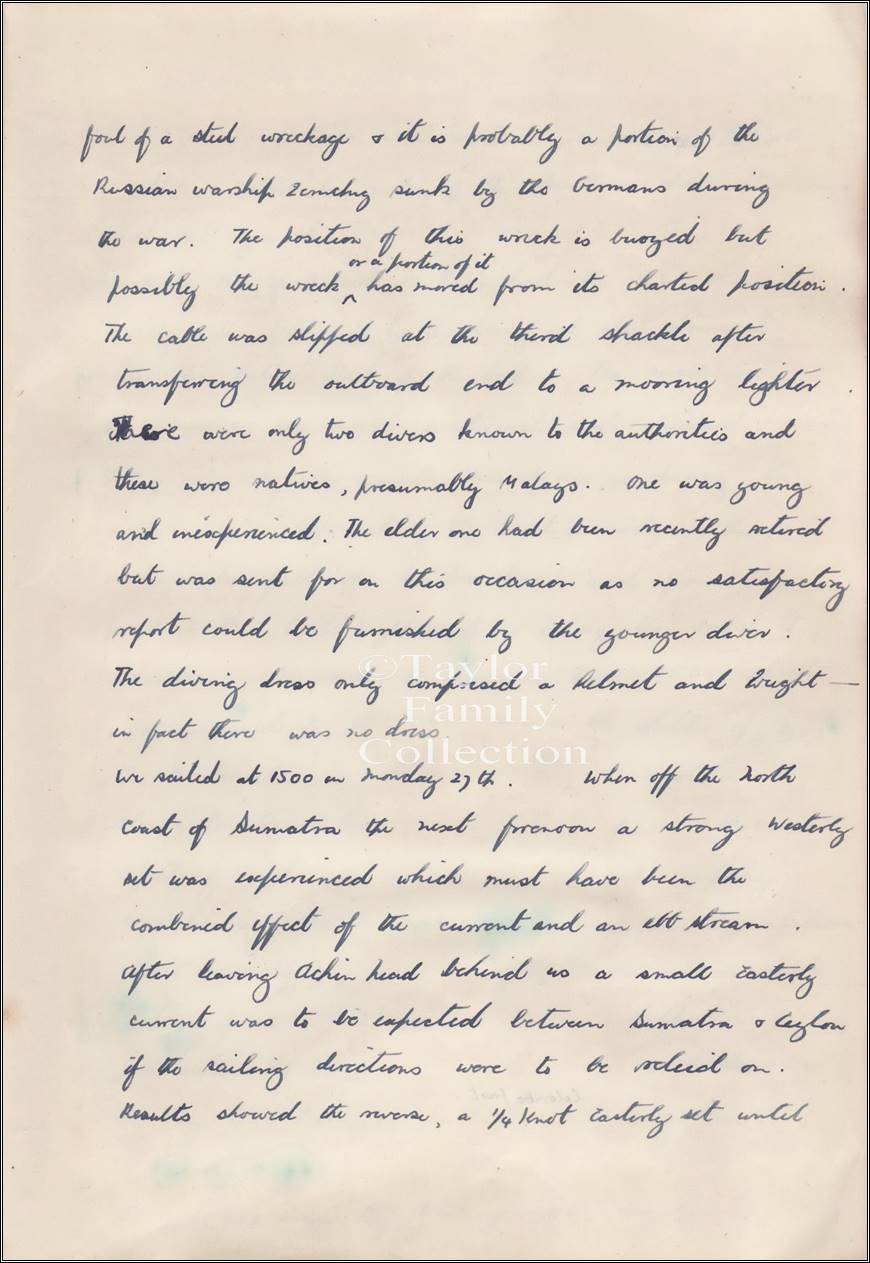 foul of a steel wreckage & it is probably a portion of the
Russian warship Zemchug sunk by the Germans during
the war. The position of this wreck is buoyed but
or a portion of it
possibly the wreck ^ has moved from its charted position.
The cable was slipped at the third shackle after
transferring the outboard end to a mooring lighter.
There were only two divers known to the authorities and
these were natives, presumably Malays. One was young
and inexperienced. The elder one had been recently retired
but was sent for on this occasion as no satisfactory
report could be furnished by the younger diver.
The diving dress only comprised a Helmet and Weight —
in fact there was no dress.
We sailed at 1500 on Monday 27th. When off the North
Coast of Sumatra the next forenoon a strong Westerly
set was experienced which must have been the
combined effect of the current and an ebb stream.
After leaving Achin Head behind us a small Easterly
current was to be expected between Sumatra & Ceylon
if the sailing directions were to be relied on.
Results showed the reverse, a 1/4 knot Easterly set until
©Taylor
Family
Collection